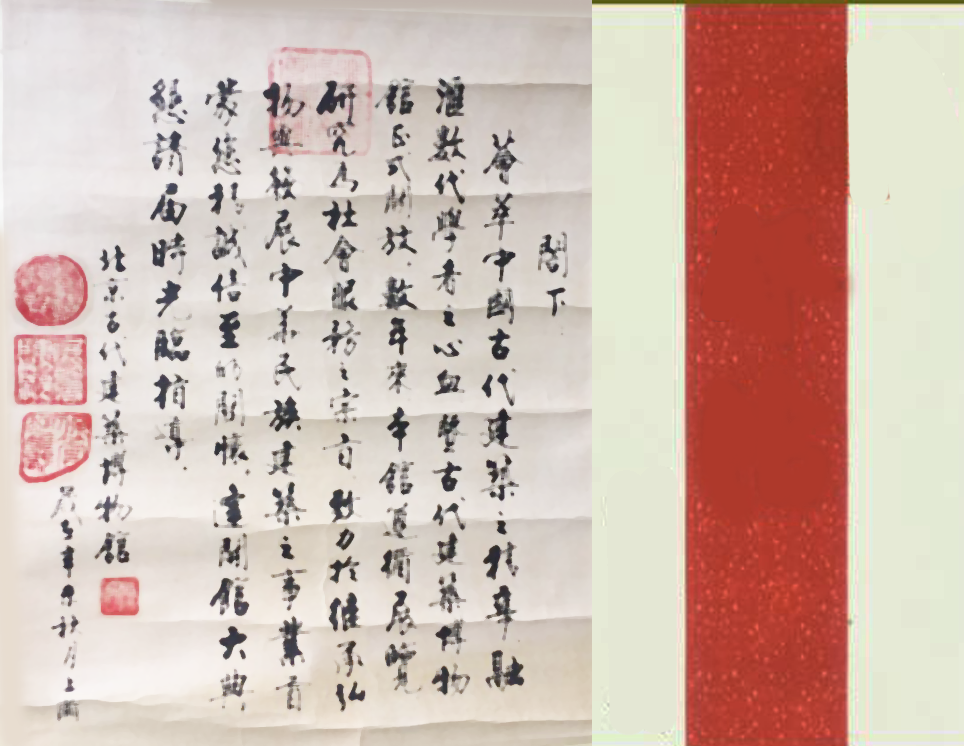 閣下
薈萃中國古代建築之精華融
滙數代學者之心血暨古代建築博物
館正式開放數年來本館遵循展覽
研究為社會服務之宗旨致力於继承弘
揚與發展中華民族建築之事業首
蒙您移誠信至的關懷。逢開館大典
懇請届時光臨指導
北京古代建築博物館
秋月上